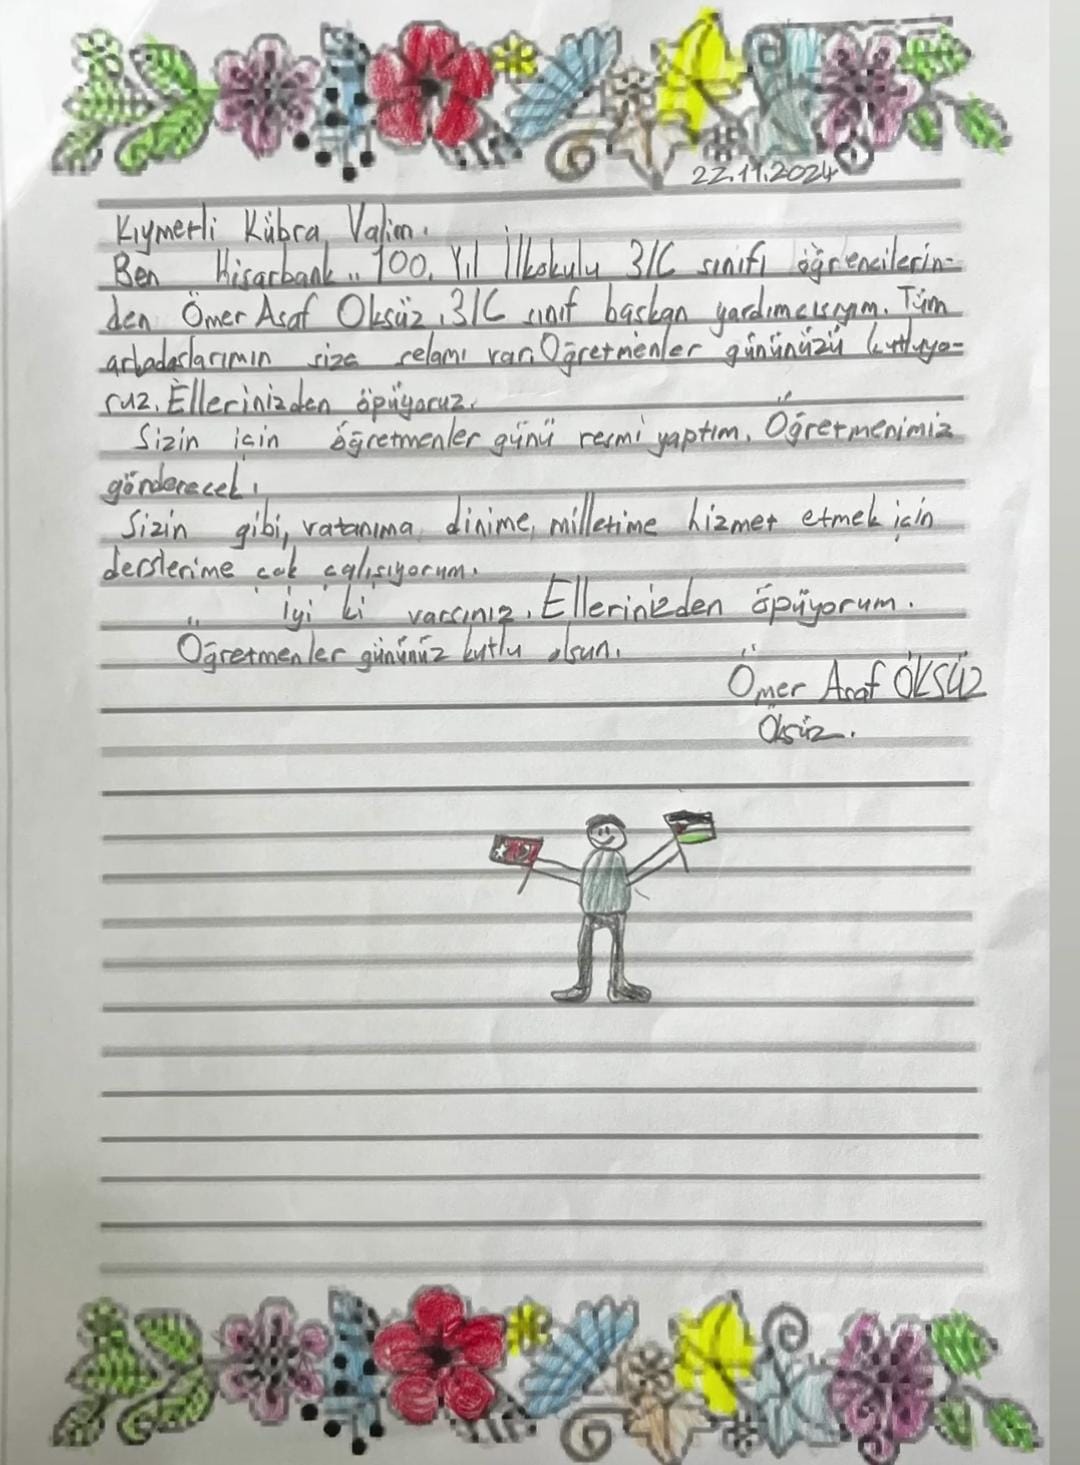 22.11.2024
Kıymetli Kübra Valim.
Ben Hisarbank 100. Yıl İlkokulu 3/C sınıfı öğrencilerin-
den Ömer Asaf Öksüz. 3/C sınıf başkan yardımcısıyım. Tüm
arkadaşlarımın size selamı var. Öğretmenler gününüzü kutluyo-
ruz. Ellerinizden öpüyoruz.
Sizin için öğretmenler günü resmi yaptım. Öğretmenimiz
gönderecek.
Sizin gibi, vatanıma, dinime, milletime hizmet etmek için
derslerime çok çalışıyorum.
İyi ki varsınız. Ellerinizden öpüyorum.
Öğretmenler gününüz kutlu olsun.
Ömer Asaf ÖKSÜZ
Öksüz.